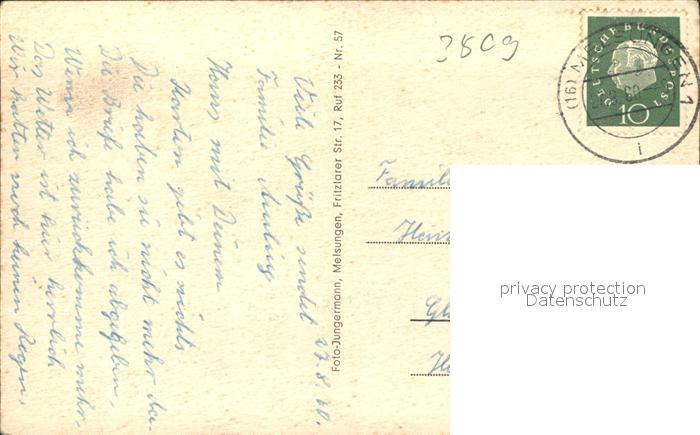 Viele Grüße sendet 27.8.60.
Familie
Hans, mit Deinem
Karten gibt es nichts
Die haben sie nicht mehr da.
Die Briefe habe ich abgegeben,
Wenn ich zurückkomme mehr.
Das Wetter ist hier herrlich
Wir hatten noch keinen Regen,
Foto-Jungermann, Melsungen, Fritzlarer Str. 17, Ruf 233 - Nr. 57
3809
DEUTSCHE BUNDESPOST
10
(16) MELSUNGEN 1
i
Famili
privacy protection
Datenschutz